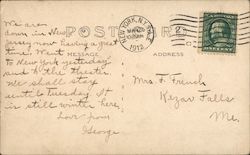 We are
down in New
Jersey now having a great
time. Went
to New York yesterday
and to the theater.
We shall stay
until Tuesday. It
is still winter here.
Love from
George
POST CARD
MESSAGE
ADDRESS
NEW YORK, N.Y.
1912
Mrs. F. French
Kezar Falls
Me.